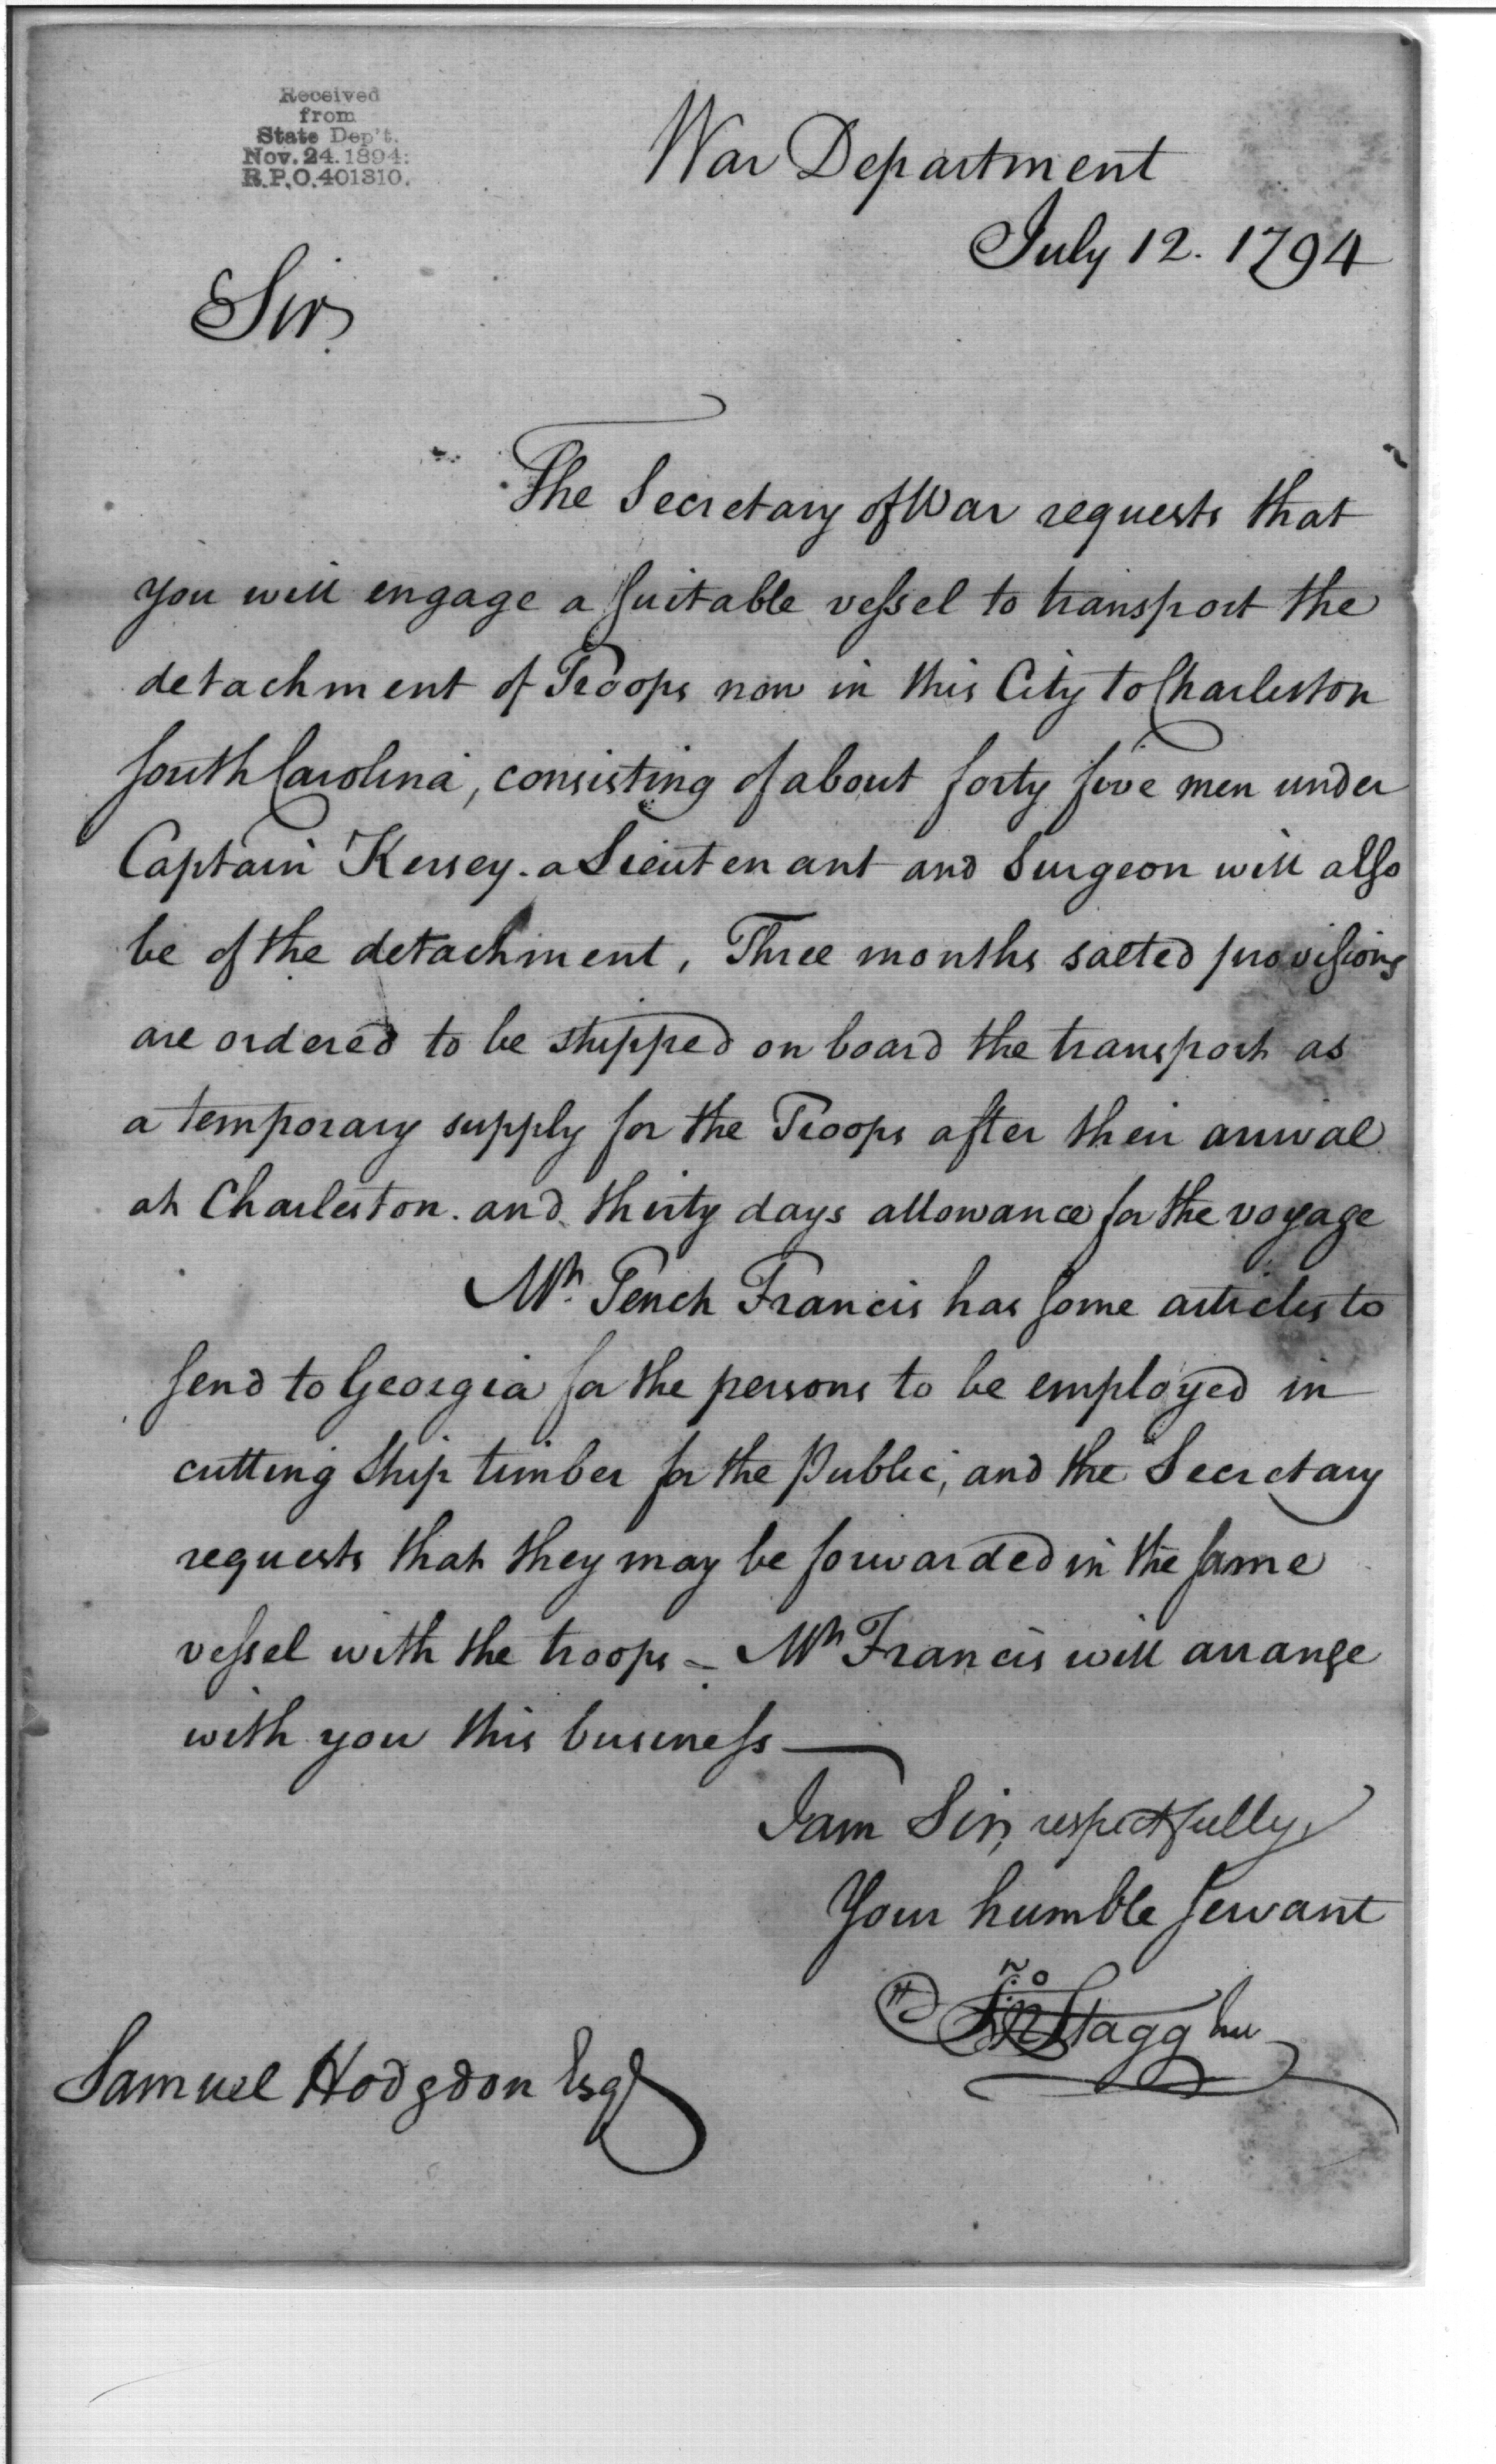 Received
from
State Dep't.
Nov. 24. 1894:
R.P.O. 401310.
War Department
July 12. 1794
Sir,
The Secretary of War requests that
you will engage a suitable vessel to transport the
detachment of Troops now in this City to Charleston
South Carolina, consisting of about forty five men under
Captain Kersey. a Lieutenant and Surgeon will also
be of the detachment, Three months salted provisions
are ordered to be shipped on board the transport as
a temporary supply for the Troops after their arrival
at Charleston. and thirty days allowance for the voyage
Mr. Tench Francis has some articles to
send to Georgia for the persons to be employed in
cutting ship timber for the Public, and the Secretary
requests that they may be forwarded in the same
vessel with the troops – Mr Francis will arrange
with you this business —
I am Sir, respectfully,
Your humble servant
Jno Stagg Jur
Samuel Hodgdon Esqr